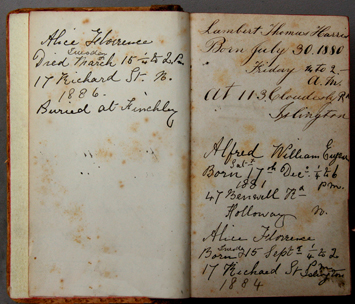 Alice Florence
Tuesday
Died March 15 1/4 to 2.
17 Richard St. N.
1886.
Buried at Finchley
Lambert Thomas Harris
Born July 30, 1880
Friday 1/4 to 2
A.M.
At 113 Cloudesly Rd
Islington
Alfred William
Sat
Born 17th Decr 1/4 to 6
1881 p.m.
47 Benwell Rd
Holloway N.
Alice Florence
Born 15 Septr 1/4 to 2
17 Richard St Islington
1884